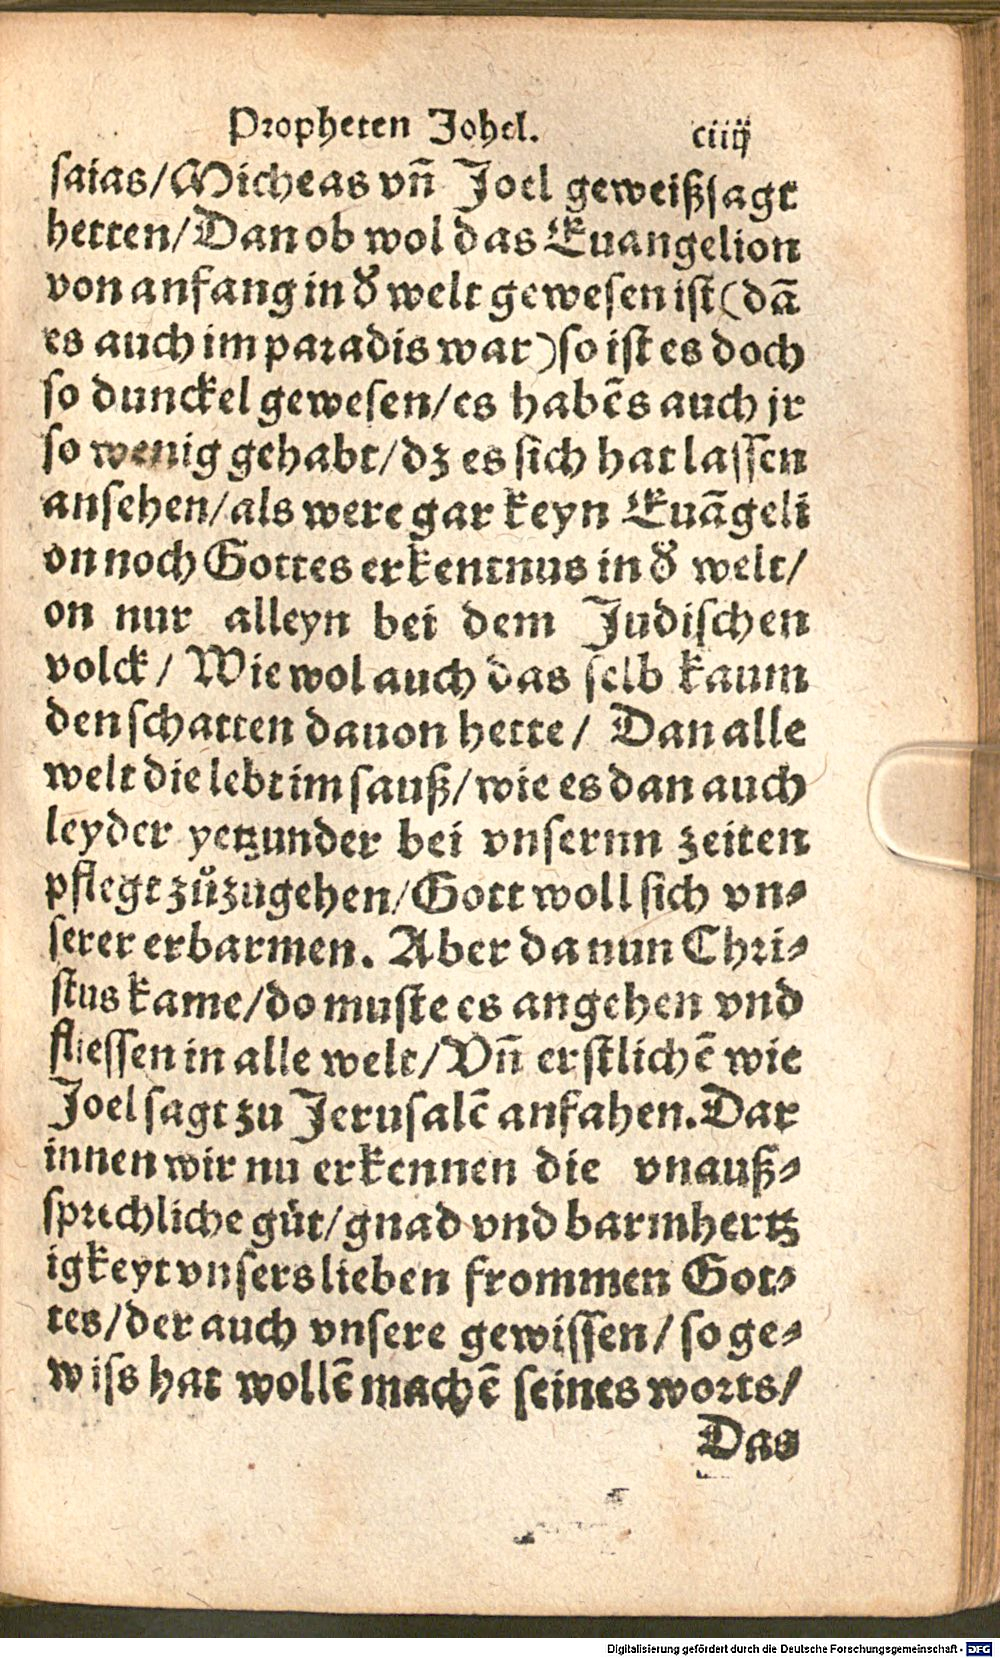 Propheten Johel. ciiij
saias/Micheas vñ Joel geweißsagt
hetten/Dan ob wol das Euangelion
von anfang in d̕ welt gewesen ist (dā
es auch im paradis war) so ist es doch
so dunckel gewesen/es habēs auch jr
so wenig gehabt/dz es sich hat lassen
ansehen/als were gar keyn Euāgeli
on noch Gottes erkentnus in d̕ welt/
on nur alleyn bei dem Judischen
volck/ Wie wol auch das selb kaum
den schatten dauon hette/ Dan alle
welt die lebt im sauß/wie es dan auch
leyder yetzunder bei vnsernn zeiten
pflegt zůzugehen/Gott woll sich vn⸗
serer erbarmen. Aber da nun Chri⸗
stus kame/do muste es angehen vnd
fliessen in alle welt/Vñ erstlichē wie
Joel sagt zu Jerusalē anfahen. Dar
innen wir nu erkennen die vnauß⸗
sprechliche güt/gnad vnd barmhertz
igkeyt vnsers lieben frommen Got⸗
tes/der auch vnsere gewissen/so ge⸗
wiss hat wollē machē seines worts/
Das
Digitalisierung gefördert durch die Deutsche Forschungsgemeinschaft - DFG